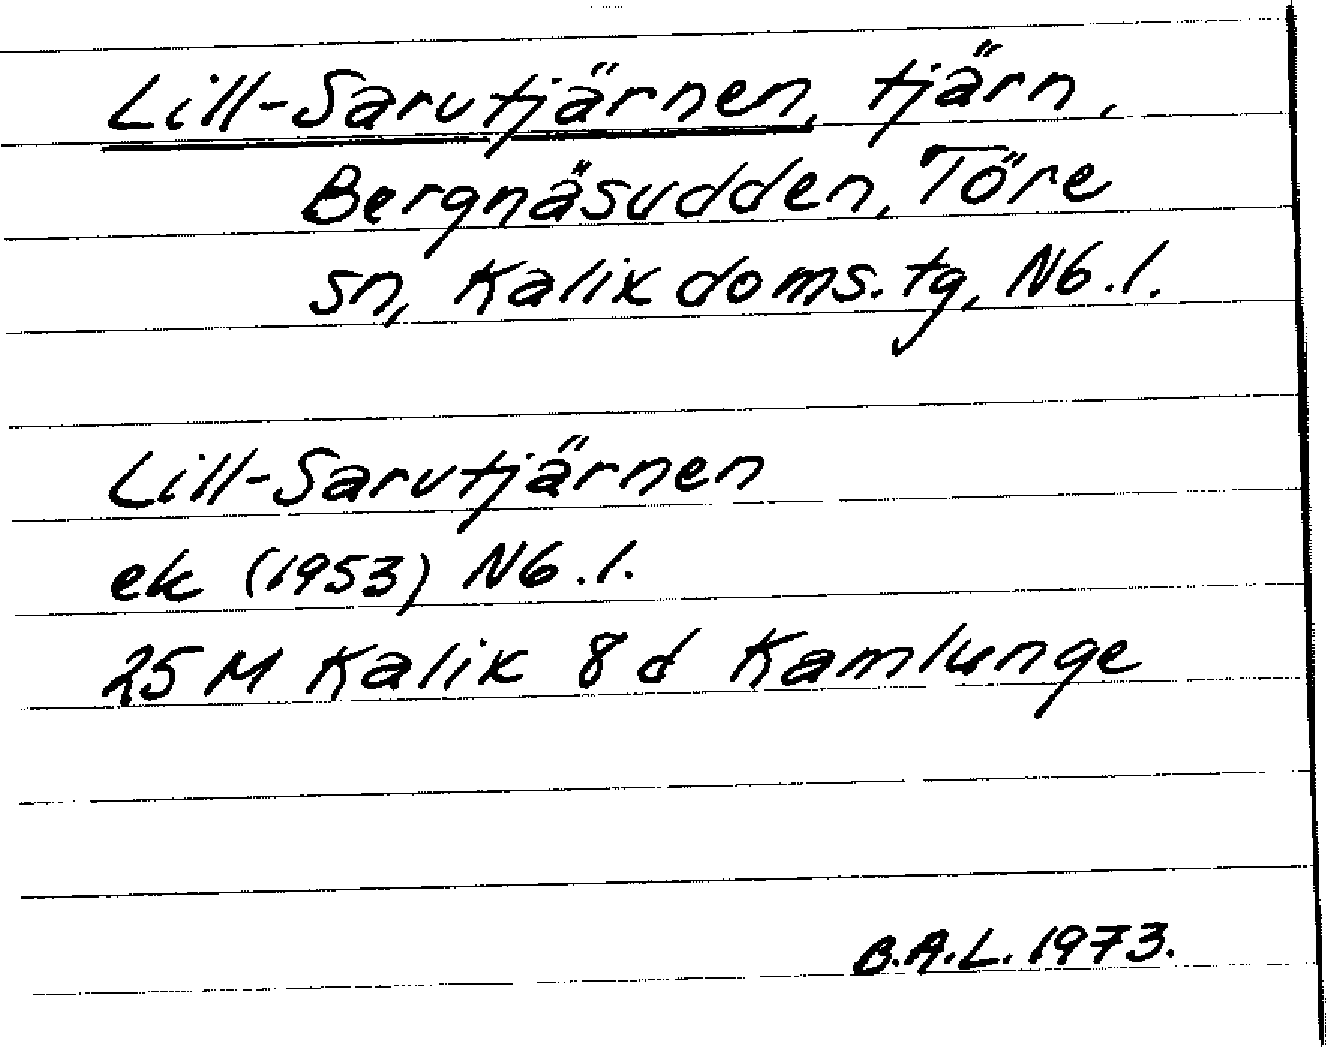 Lill-Sarutjärnen, tjärn,
Bergnäsudden, Töre
sn, Kalix doms.tg, Nb.l.
Lill-Sarutjärnen
ek (1953) Nb.l.
25 M Kalix 8 d Kamlunge
B.A.L. 1973.